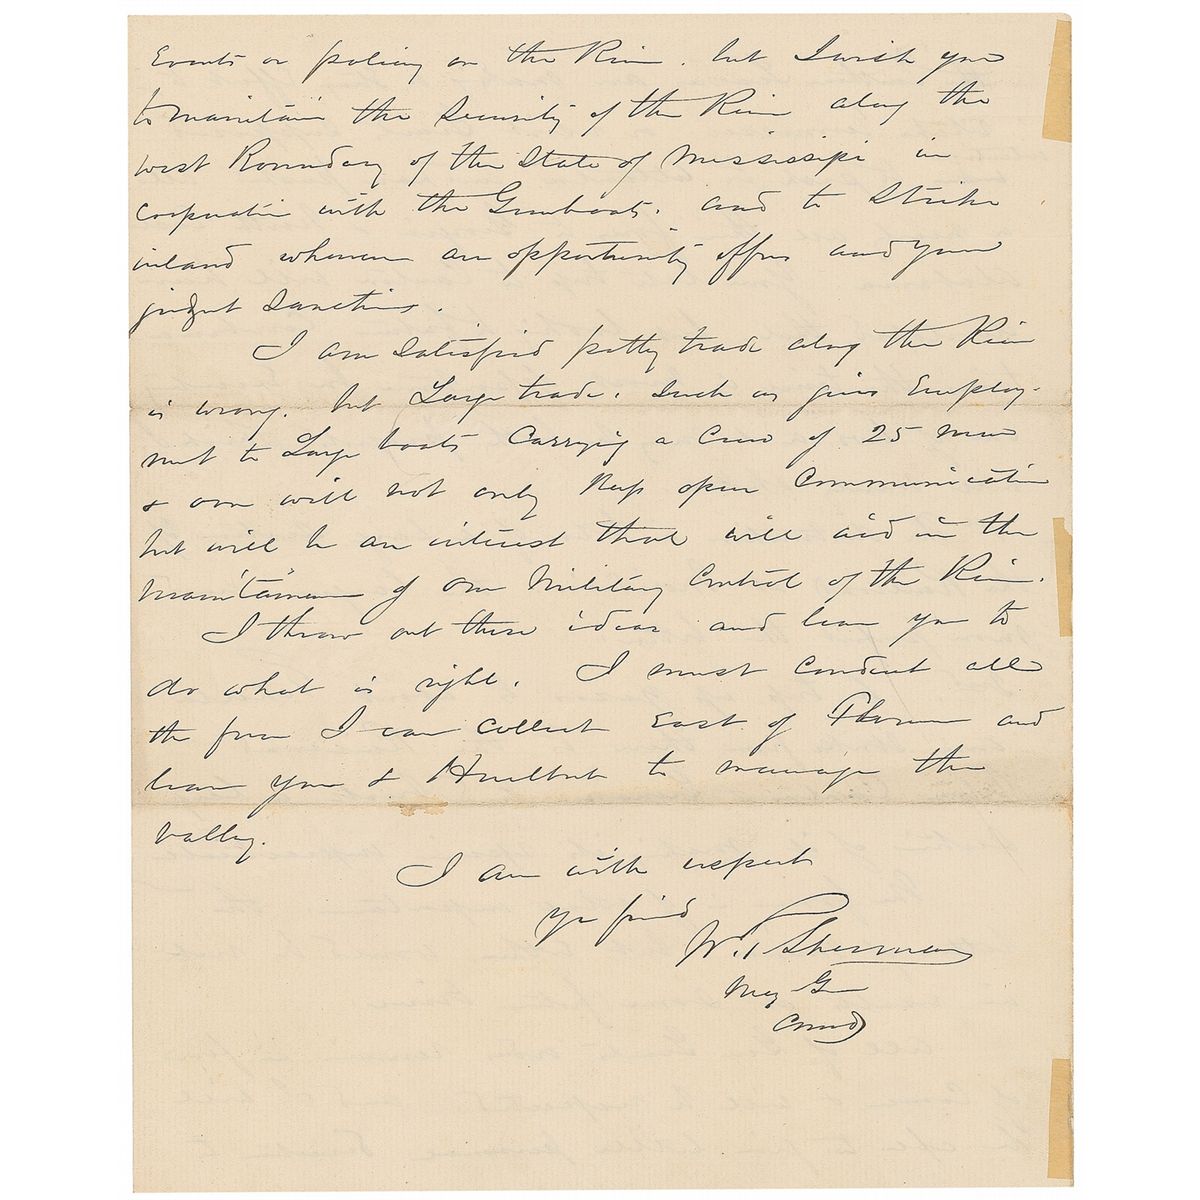 Events or policy on the River. but I wish you
to maintain the Security of the River along the
west Boundary of the State of Mississipi in
cooperation with the Gunboats. and to Strike
inland whenever an opportunity offers and your
judgmt Sanctions.
I am Satisfied petty trade along the River
is wrong. but Large trade. Such as gives Employ-
ment to Large boats Carrying a Crew of 25 men
& over will not only Keep open Communication
but will be an interest that will aid in the
maintainance of our Military Control of the River.
I throw out these ideas and leave you to
do what is right. I must conduct all
the force I can Collect East of Florence and
leave you & Hurlbut to manage the
Valley.
I am with respect
yr friend
W. T. Sherman
Maj Gen
Comd